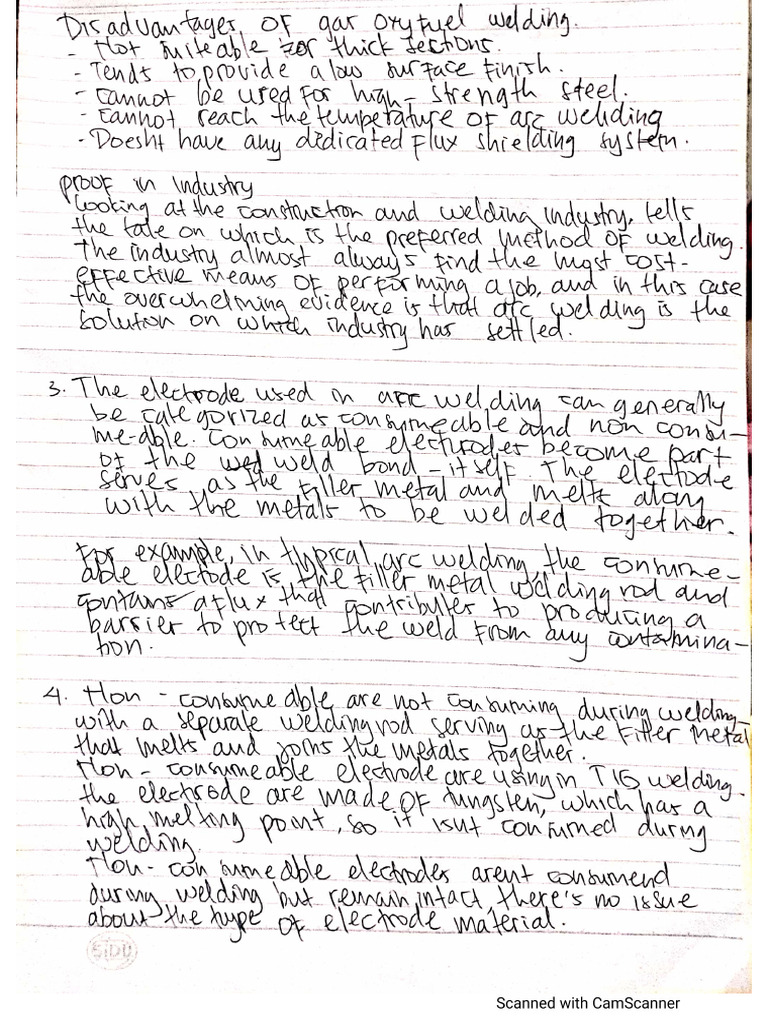 Disadvantages of gas oxyfuel welding.
- Not suiteable for thick sections.
- Tends to provide a low surface finish.
- cannot be used for high-strength steel.
- cannot reach the temperature of arc welding
- Doesnt have any dedicated flux shielding system.
proof in Industry
Looking at the construction and welding industry, tells
the tale on which is the preferred method of welding.
The industry almost always find the most cost-
effective means of performing a job, and in this case
the overwhelming evidence is that arc welding is the
solution on which industry has settled.
3. The electrode used in arc welding can generally
be categorized as consumeable and non consu-
me-able. Consumeable electrodes become part
of the weld bond - itself. The electode
serves as the filler metal and melts along
with the metals to be welded together.
For example, in typical arc welding, the consume-
able electode is the filler metal welding rod and
contains a flux that contributes to producing a
barrier to protect the weld from any contamina-
tion.
4. Non - consumeable are not consuming during welding
with a separate welding rod serving as the filler metal
that melts and joins the metals together.
Non - consumeable electrode are using in TIG welding.
the electrode are made of tungsten, which has a
high melting point, so it isnt consumed during
welding.
Non- consumeable electrodes arent consumend
during welding but remain intact, there's no issue
about the type of electrode material.
SIDU
Scanned with CamScanner